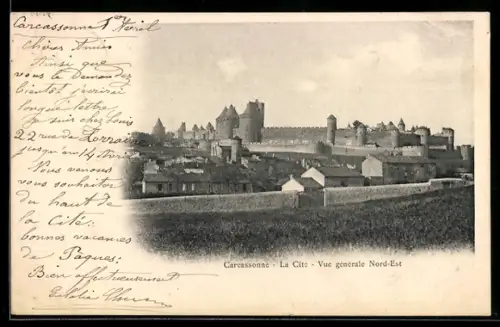 Carcassonne 1er Avril
Chères Amies
Ainsi que
vous le demandez
bientôt j'écrirai
longue lettre,
je suis chez Louis
22 rue de Lorraine
jusqu'au 14 Avril
Nous venons
vous souhaiter
du haut
de la
Cité:
bonnes vacances
de Pâques;
Bien affectueusement
Carcassonne - La Cité - Vue generale Nord-Est